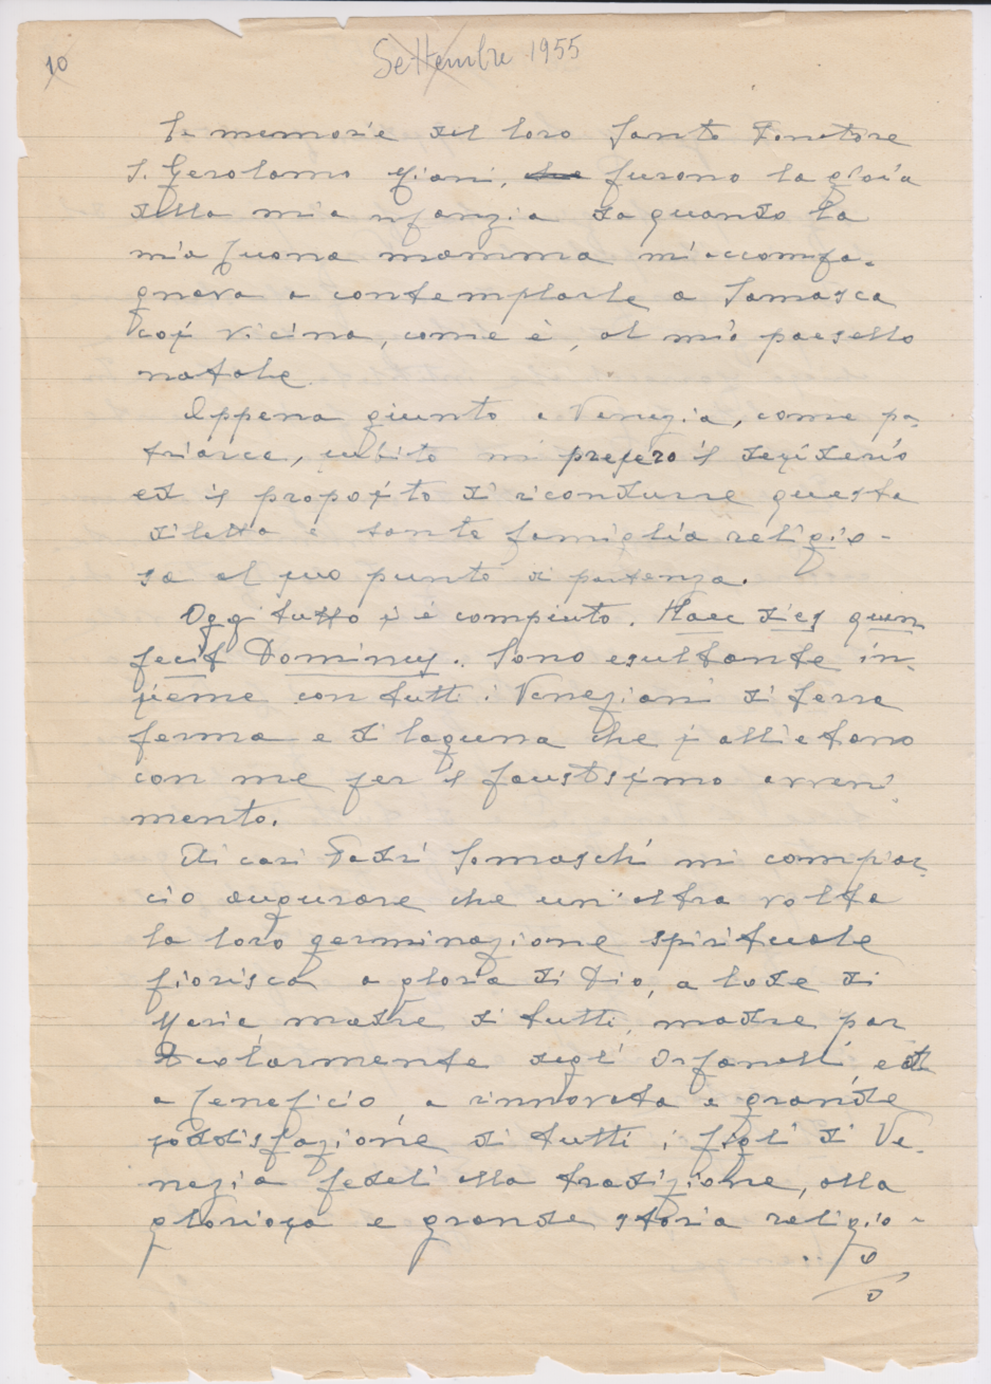 10
Settembre 1955
Le memorie del loro Santo Fondatore
S. Gerolamo Miani, che furono la gioia
della mia infanzia da quando la
mia buona mamma mi accompa-
gnava a contemplarle a Somasca
così vicina, come è, al mio paesello
natale.
Appena giunto a Venezia, come pa-
triarca, subito mi presero il desiderio
ed il proposito di ricondurre questa
diletta e santa famiglia religio-
sa al suo punto di partenza.
Oggi tutto si è compiuto. Haec dies quam
fecit Dominus. Sono esultante in-
sieme con tutti i Veneziani di terra
ferma e di laguna che si allietano
con me per il faustissimo avveni
mento.
Ai cari Padri Somaschi mi compiac-
cio augurare che un'altra volta
la loro germinazione spirituale
fiorisca a gloria di Dio, a lode di
Maria, madre di tutti, madre par
ticolarmente degli Orfanelli, ed
a beneficio, a rinnovata e grande
soddisfazione di tutti i figli di Ve-
nezia fedeli alla tradizione, alla
gloriosa e grande storia religio-